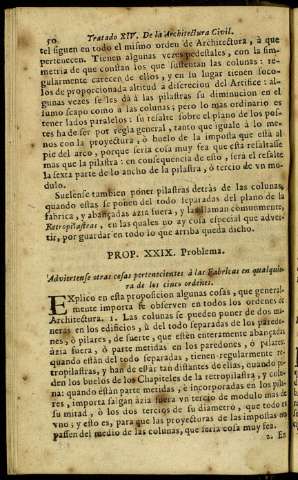 50 Tratado XIV. De la Architectura Civil.
tel siguen en todo el mismo orden de Architectura, à que
pertenecen. Tienen algunas vezes pedestales, con la sim-
metria de que constan los que sustentan las colunas: re-
gularmente carecen de ellos, y en su lugar tienen zoco-
los de proporcionada altitud à diferecion del Artifice: al-
gunas vezes se les dà à las pilastras su diminucion en el
sumo scapo como à las colunas; pero lo mas ordinario es
tener lados paralelos: su resalte sobre el plano de los pos-
tes ha de ser por regla general, tanto que iguale à lo me-
nos con la proyectura, ò buelo de la imposta que està al
pie del arco, porque seria cosa muy fea que esta resaltasse
mas que la pilastra: en consequencia de esto, serà el resalte
la sexta parte de lo ancho de la pilastra, ò tercio de vn mo-
dulo.
Suelense tambien poner pilastras detràs de las colunas,
quando estas se ponen del todo separadas del plano de la
fabrica, y abançadas àzia fuera, y la llaman comunmente,
Retropilastras, en las quales no ay cosa especial que adver-
tir, por guardar en todo lo que arriba queda dicho.
PROP. XXIX. Problema.
Adviertense otras cosas pertenecientes à las Fabricas en qualquie-
ra de los cinco ordenes.
EXplico en esta proposicion algunas cosas, que general-
mente importa se observen en todos los ordenes de
Architectura. 1. Las colunas se pueden poner de dos ma-
neras en los edificios, ù del todo separadas de los paredo-
nes, ò pilares, de suerte, que estèn enteramente abançadas
àzia fuera, ò parte metidas en los paredones, ò pilares:
quando estàn del todo separadas, tienen regularmente re-
tropilastras, y han de estàr tan distantes de ellas, quando pi-
den los buelos de los Chapiteles de la retropilastra, y colu-
na: quando estàn parte metidas, è incorporadas en los pila-
res, importa salgan àzia fuera vn tercio de modulo mas de
su mitad, ò los dos tercios de su diametro, que todo es
vno; y esto es, para que las proyecturas de las impostas no
passen del medio de las colunas, que seria cosa muy fea.
2. En